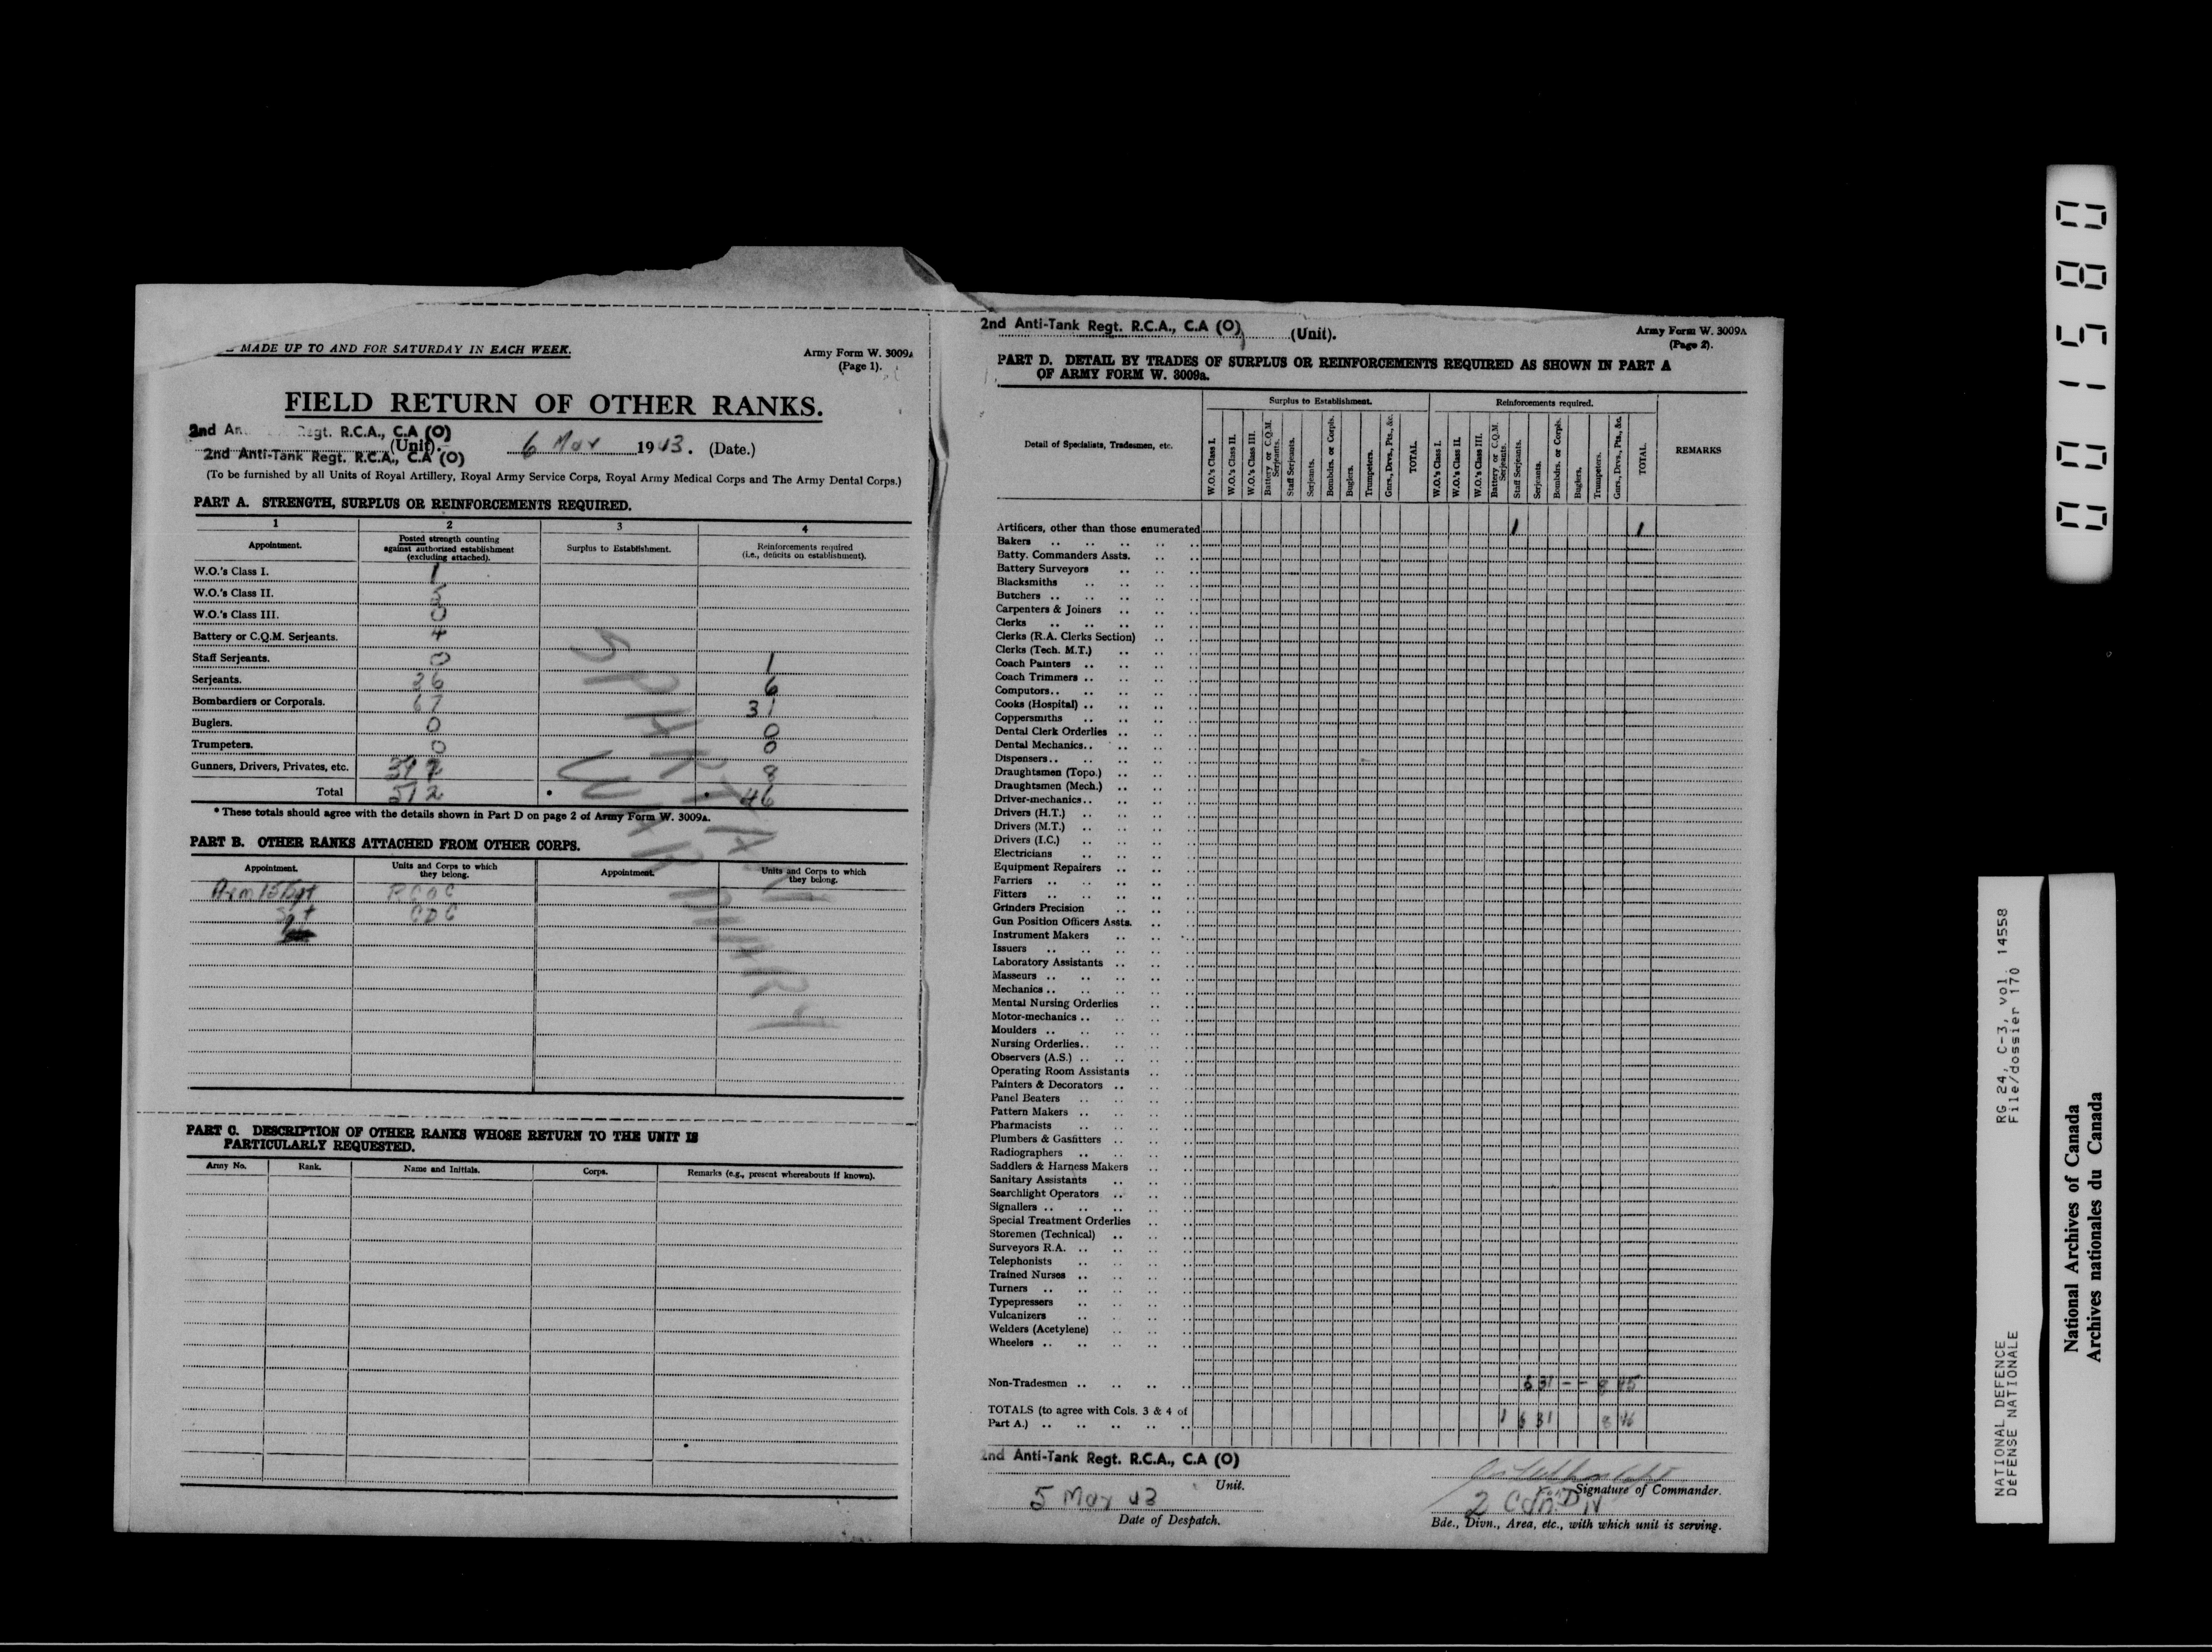 MADE UP TO AND FOR SATURDAY IN EACH WEEK.
Army Form W. 3009A
(Page 1).
FIELD RETURN OF OTHER RANKS.
2nd An Regt. R.C.A., C.A (O)
(Unit).
2nd Anti-Tank Regt. R.C.A., C.A (O)
6 Mar 1943. (Date.)
(To be furnished by all Units of Royal Artillery, Royal Army Service Corps, Royal Army Medical Corps and The Army Dental Corps.)
PART A. STRENGTH, SURPLUS OR REINFORCEMENTS REQUIRED.
1 2 3 4
Appointment. Posted strength counting against authorized establishment (excluding attached). Surplus to Establishment. Reinforcements required (i.e., deficits on establishment).
W.O.'s Class I. 1
W.O.'s Class II. 5
W.O.'s Class III. 0
Battery or C.Q.M. Serjeants. 4
Staff Serjeants. 0 1
Serjeants. 36 6
Bombardiers or Corporals. 67 31
Buglers. 0 0
Trumpeters. 0 0
Gunners, Drivers, Privates, etc. 8
Total 512 • • 46
* These totals should agree with the details shown in Part D on page 2 of Army Form W. 3009A.
SPARTAN
WAR DIARY
PART B. OTHER RANKS ATTACHED FROM OTHER CORPS.
Appointment. Units and Corps to which they belong. Appointment. Units and Corps to which they belong.
RCOC
Sgt CDC
PART C. DESCRIPTION OF OTHER RANKS WHOSE RETURN TO THE UNIT IS
PARTICULARLY REQUESTED.
Army No. Rank. Name and Initials. Corps. Remarks (e.g., present whereabouts if known).
2nd Anti-Tank Regt. R.C.A., C.A (O) (Unit).
Army Form W. 3009A
(Page 2).
PART D. DETAIL BY TRADES OF SURPLUS OR REINFORCEMENTS REQUIRED AS SHOWN IN PART A
OF ARMY FORM W. 3009a.
Detail of Specialists, Tradesmen, etc. Surplus to Establishment. Reinforcements required. REMARKS
W.O.'s Class I. W.O.'s Class II. W.O.'s Class III. Battery or C.Q.M. Serjeants. Staff Serjeants. Serjeants. Bombdrs. or Corpls. Buglers. Trumpeters. Gnrs., Drvs., Pts., &c. TOTAL.
W.O.'s Class I. W.O.'s Class II. W.O.'s Class III. Battery or C.Q.M. Serjeants. Staff Serjeants. Serjeants. Bombdrs. or Corpls. Buglers. Trumpeters. Gnrs., Drvs., Pts., &c. TOTAL.
Artificers, other than those enumerated 1 1
Bakers
Batty. Commanders Assts.
Battery Surveyors
Blacksmiths
Butchers
Carpenters & Joiners
Clerks
Clerks (R.A. Clerks Section)
Clerks (Tech. M.T.)
Coach Painters
Coach Trimmers
Computors
Cooks (Hospital)
Coppersmiths
Dental Clerk Orderlies
Dental Mechanics
Dispensers
Draughtsmen (Topo.)
Draughtsmen (Mech.)
Driver-mechanics
Drivers (H.T.)
Drivers (M.T.)
Drivers (I.C.)
Electricians
Equipment Repairers
Farriers
Fitters
Grinders Precision
Gun Position Officers Assts.
Instrument Makers
Issuers
Laboratory Assistants
Masseurs
Mechanics
Mental Nursing Orderlies
Motor-mechanics
Moulders
Nursing Orderlies
Observers (A.S.)
Operating Room Assistants
Painters & Decorators
Panel Beaters
Pattern Makers
Pharmacists
Plumbers & Gasfitters
Radiographers
Saddlers & Harness Makers
Sanitary Assistants
Searchlight Operators
Signallers
Special Treatment Orderlies
Storemen (Technical)
Surveyors R.A.
Telephonists
Trained Nurses
Turners
Typepressers
Vulcanizers
Welders (Acetylene)
Wheelers
Non-Tradesmen 6 31 - - 8 45
TOTALS (to agree with Cols. 3 & 4 of
Part A.) 1 6 31 8 46
2nd Anti-Tank Regt. R.C.A., C.A (O)
Unit.
5 Mar 43
Date of Despatch.
Signature of Commander.
2 Cdn Div
Bde., Divn., Area, etc., with which unit is serving.
001580
NATIONAL DEFENCE RG 24, C-3, vol. 14558
DÉFENSE NATIONALE File/dossier 170
National Archives of Canada
Archives nationales du Canada